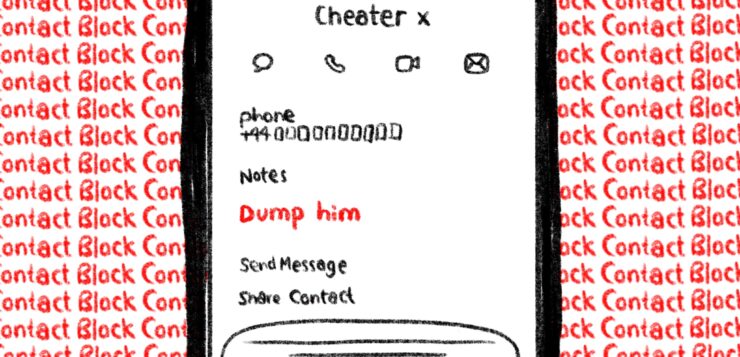 Cheater x
phone
+44
Notes
Dump him
Send Message
Share Contact
Contact Block Contact Block
Contact Block Contact Block
Contact Block Contact Block
Contact Block Contact Block
Contact Block Contact Block
Contact Block Contact Block
Contact Block Contact Block
Contact Block Contact Block
Contact Block Contact Block
Contact Block Contact Block
Contact Block Contact Block
Contact Block Contact Block
Contact Block Contact Block